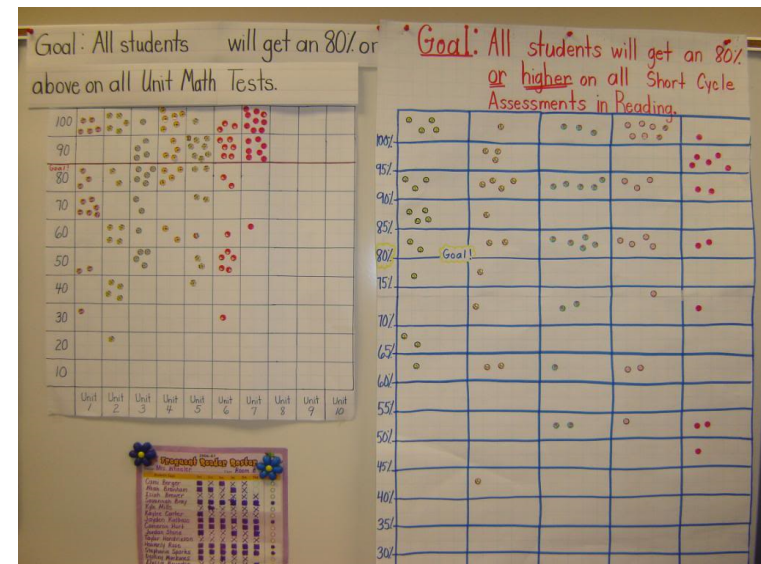 Goal: All students will get an 80% or
above on all Unit Math Tests.
100
90
Goal!
80
70
60
50
40
30
20
10
Unit 1
Unit 2
Unit 3
Unit 4
Unit 5
Unit 6
Unit 7
Unit 8
Unit 9
Unit 10
Frequent Reader Roster
Goal: All students will get an 80%
or higher on all Short Cycle
Assessments in Reading.
100%
95%
90%
85%
80%
Goal!
75%
70%
65%
60%
55%
50%
45%
40%
35%
30%